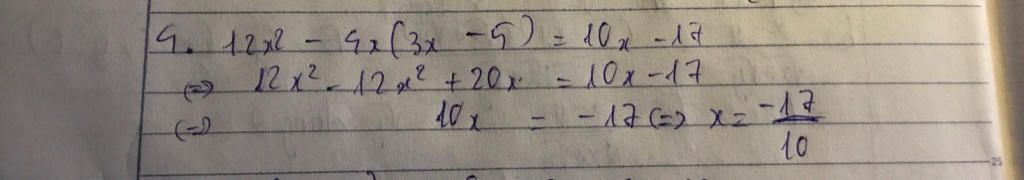 4. 12x² - 4x(3x - 5) = 10x - 17
<=> 12x² - 12x² + 20x = 10x - 17
<=> 10x = -17 <=> x = -17/10
25